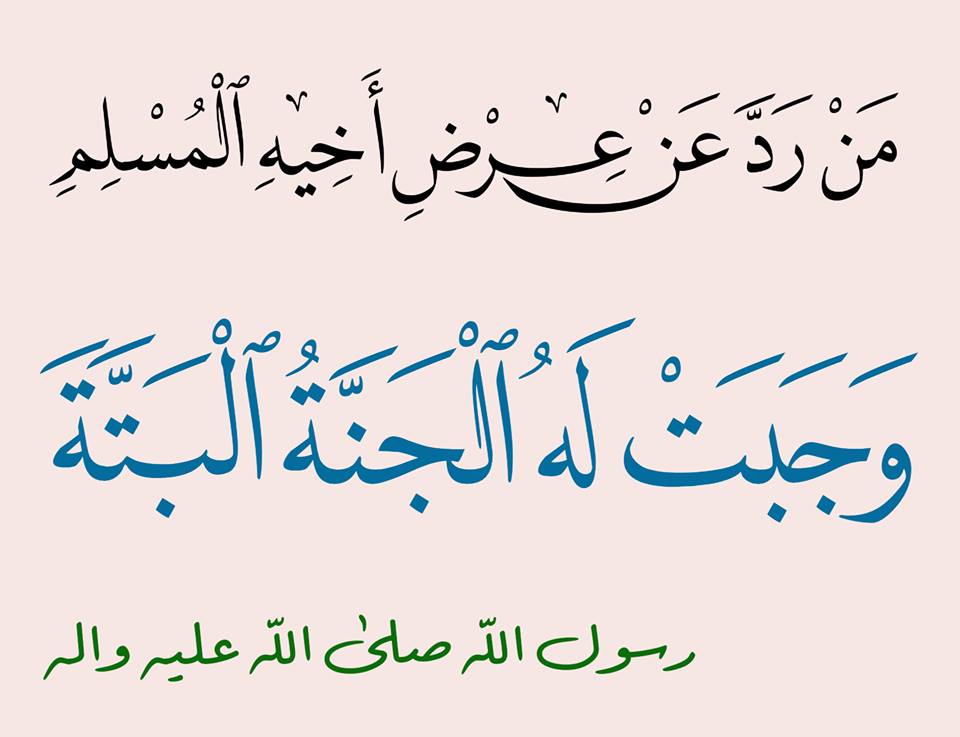 مَنْ رَدَّ عَنْ عِرْضِ أَخِيهِ ٱلْمُسْلِمِ
وَجَبَتْ لَهُ ٱلْجَنَّةُ ٱلْبَتَّةَ
رسول اللّه صلیٰ اللّه علیه واله